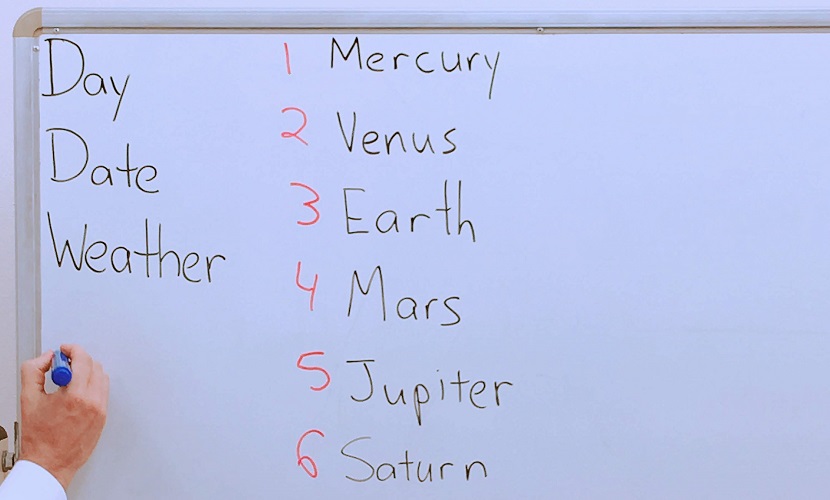 Day
Date
Weather
1 Mercury
2 Venus
3 Earth
4 Mars
5 Jupiter
6 Saturn